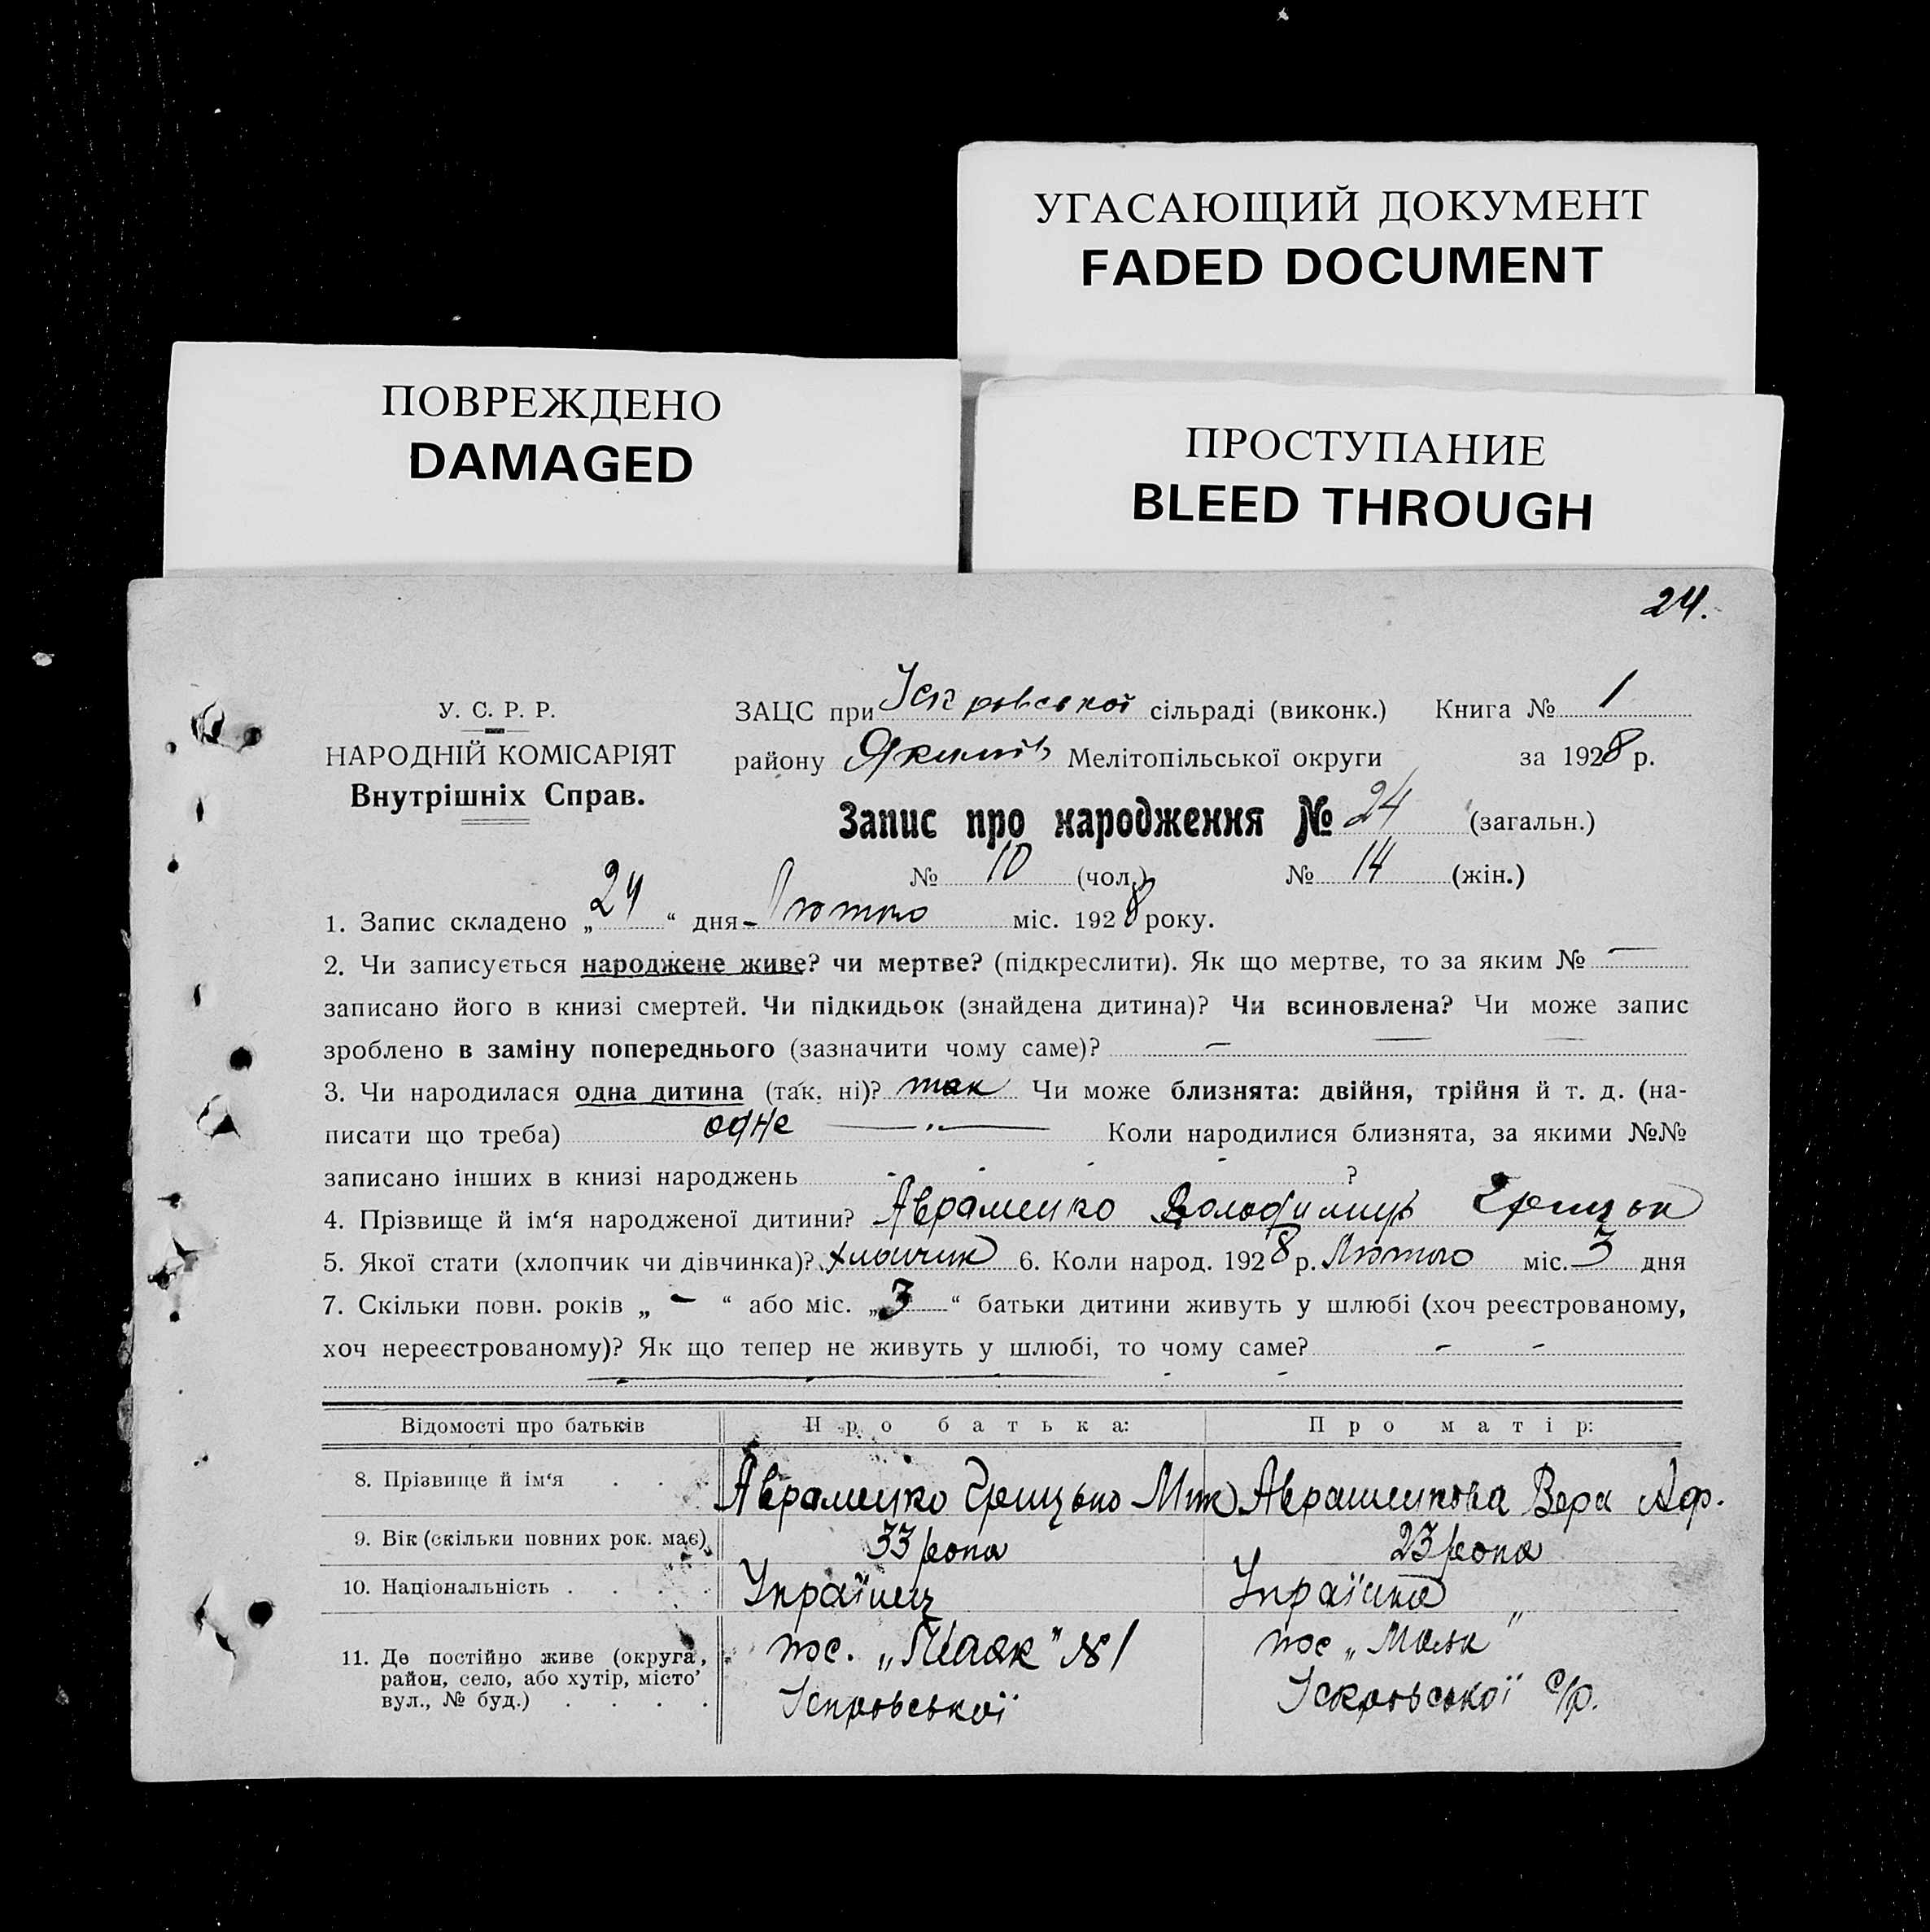 УГАСАЮЩИЙ ДОКУМЕНТ
FADED DOCUMENT
ПОВРЕЖДЕНО
DAMAGED
ПРОСТУПАНИЕ
BLEED THROUGH
24.
У. С. Р. Р.
НАРОДНІЙ КОМІСАРІЯТ
Внутрішніх Справ.
ЗАЦС при Іскровської сільраді (виконк.) Книга № 1
району Якимів Мелітопільської округи за 1928 р.
Запис про народження № 24 (загальн.)
№ 10 (чол.) № 14 (жін.)
1. Запис складено „ 24 “ дня Лютого міс. 1928 року.
2. Чи записується народжене живе? чи мертве? (підкреслити). Як що мертве, то за яким № —
записано його в книзі смертей. Чи підкидьок (знайдена дитина)? Чи всиновлена? Чи може запис
зроблено в заміну попереднього (зазначити чому саме)? — — —
3. Чи народилася одна дитина (так, ні)? так Чи може близнята: двійня, трійня й т. д. (на-
писати що треба) одне — „ — Коли народилися близнята, за якими №№
записано інших в книзі народжень - - - - ?
4. Прізвище й ім‘я народженої дитини? Авраменко Володимир Грицьк
5. Якої стати (хлопчик чи дівчинка)? хлопчик 6. Коли народ. 1928 р. Лютого міс. 3 дня
7. Скільки повн. років „ - “ або міс. „ 3 “ батьки дитини живуть у шлюбі (хоч реєстрованому,
хоч нереєстрованому)? Як що тепер не живуть у шлюбі, то чому саме? - -
Відомості про батьків Про батька: Про матір:
8. Прізвище й ім‘я . . . Авраменко Грицько Мик Авраменкова Вера Аф.
9. Вік (скільки повних рок. має) 33 рока 23 рока
10. Національність . . . . Українец Українка
11. Де постійно живе (округа, район, село, або хутір, місто’ вул., № буд.) . . . . пос. „Маяк” №1 Іскровської пос „Маяк” Іскровської с/р.